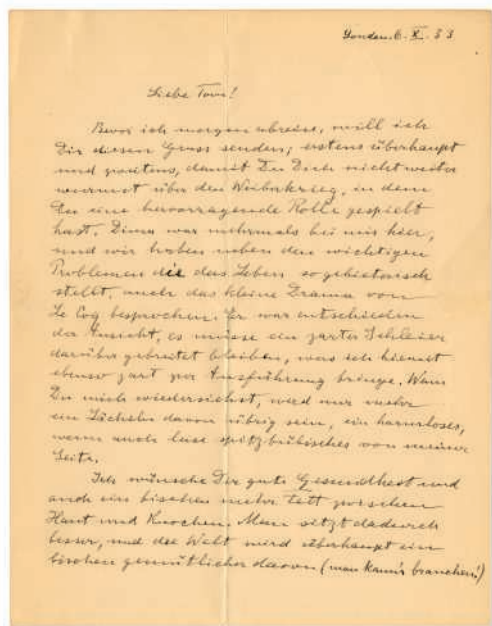 London 6. X. 33
Liebe Toni!
Bevor ich morgen abreise, will ich
Dir diesen Gruss senden; erstens überhaupt
und zweitens, damit Du Dich nicht weiter
wurmst über den Weiberkrieg, in dem
Du eine hervorragende Rolle gespielt
hast. Dima war mehrmals bei mir hier,
und wir haben neben den wichtigen
Problemen die das Leben so gehistorisch
stellt, auch das kleine Drama von
Le Coq besprochen. Er war entschieden
der Ansicht, es müsse ein zarter Schleier
darüber gebreitet bleiben, was ich hiemit
ebenso zart zur Ausführung bringe. Wenn
Du mich wiedersiehst, wird nur mehr
ein Lächeln davon übrig sein, ein harmloses,
wenn auch leise spitzbübisches von meiner
Seite.
Ich wünsche Dir gute Gesundheit und
auch ein bischen mehr Fett zwischen
Haut und Knochen. Man sitzt dadurch
besser, und die Welt wird überhaupt ein
bischen gemütlicher davon (man kann's brauchen!)